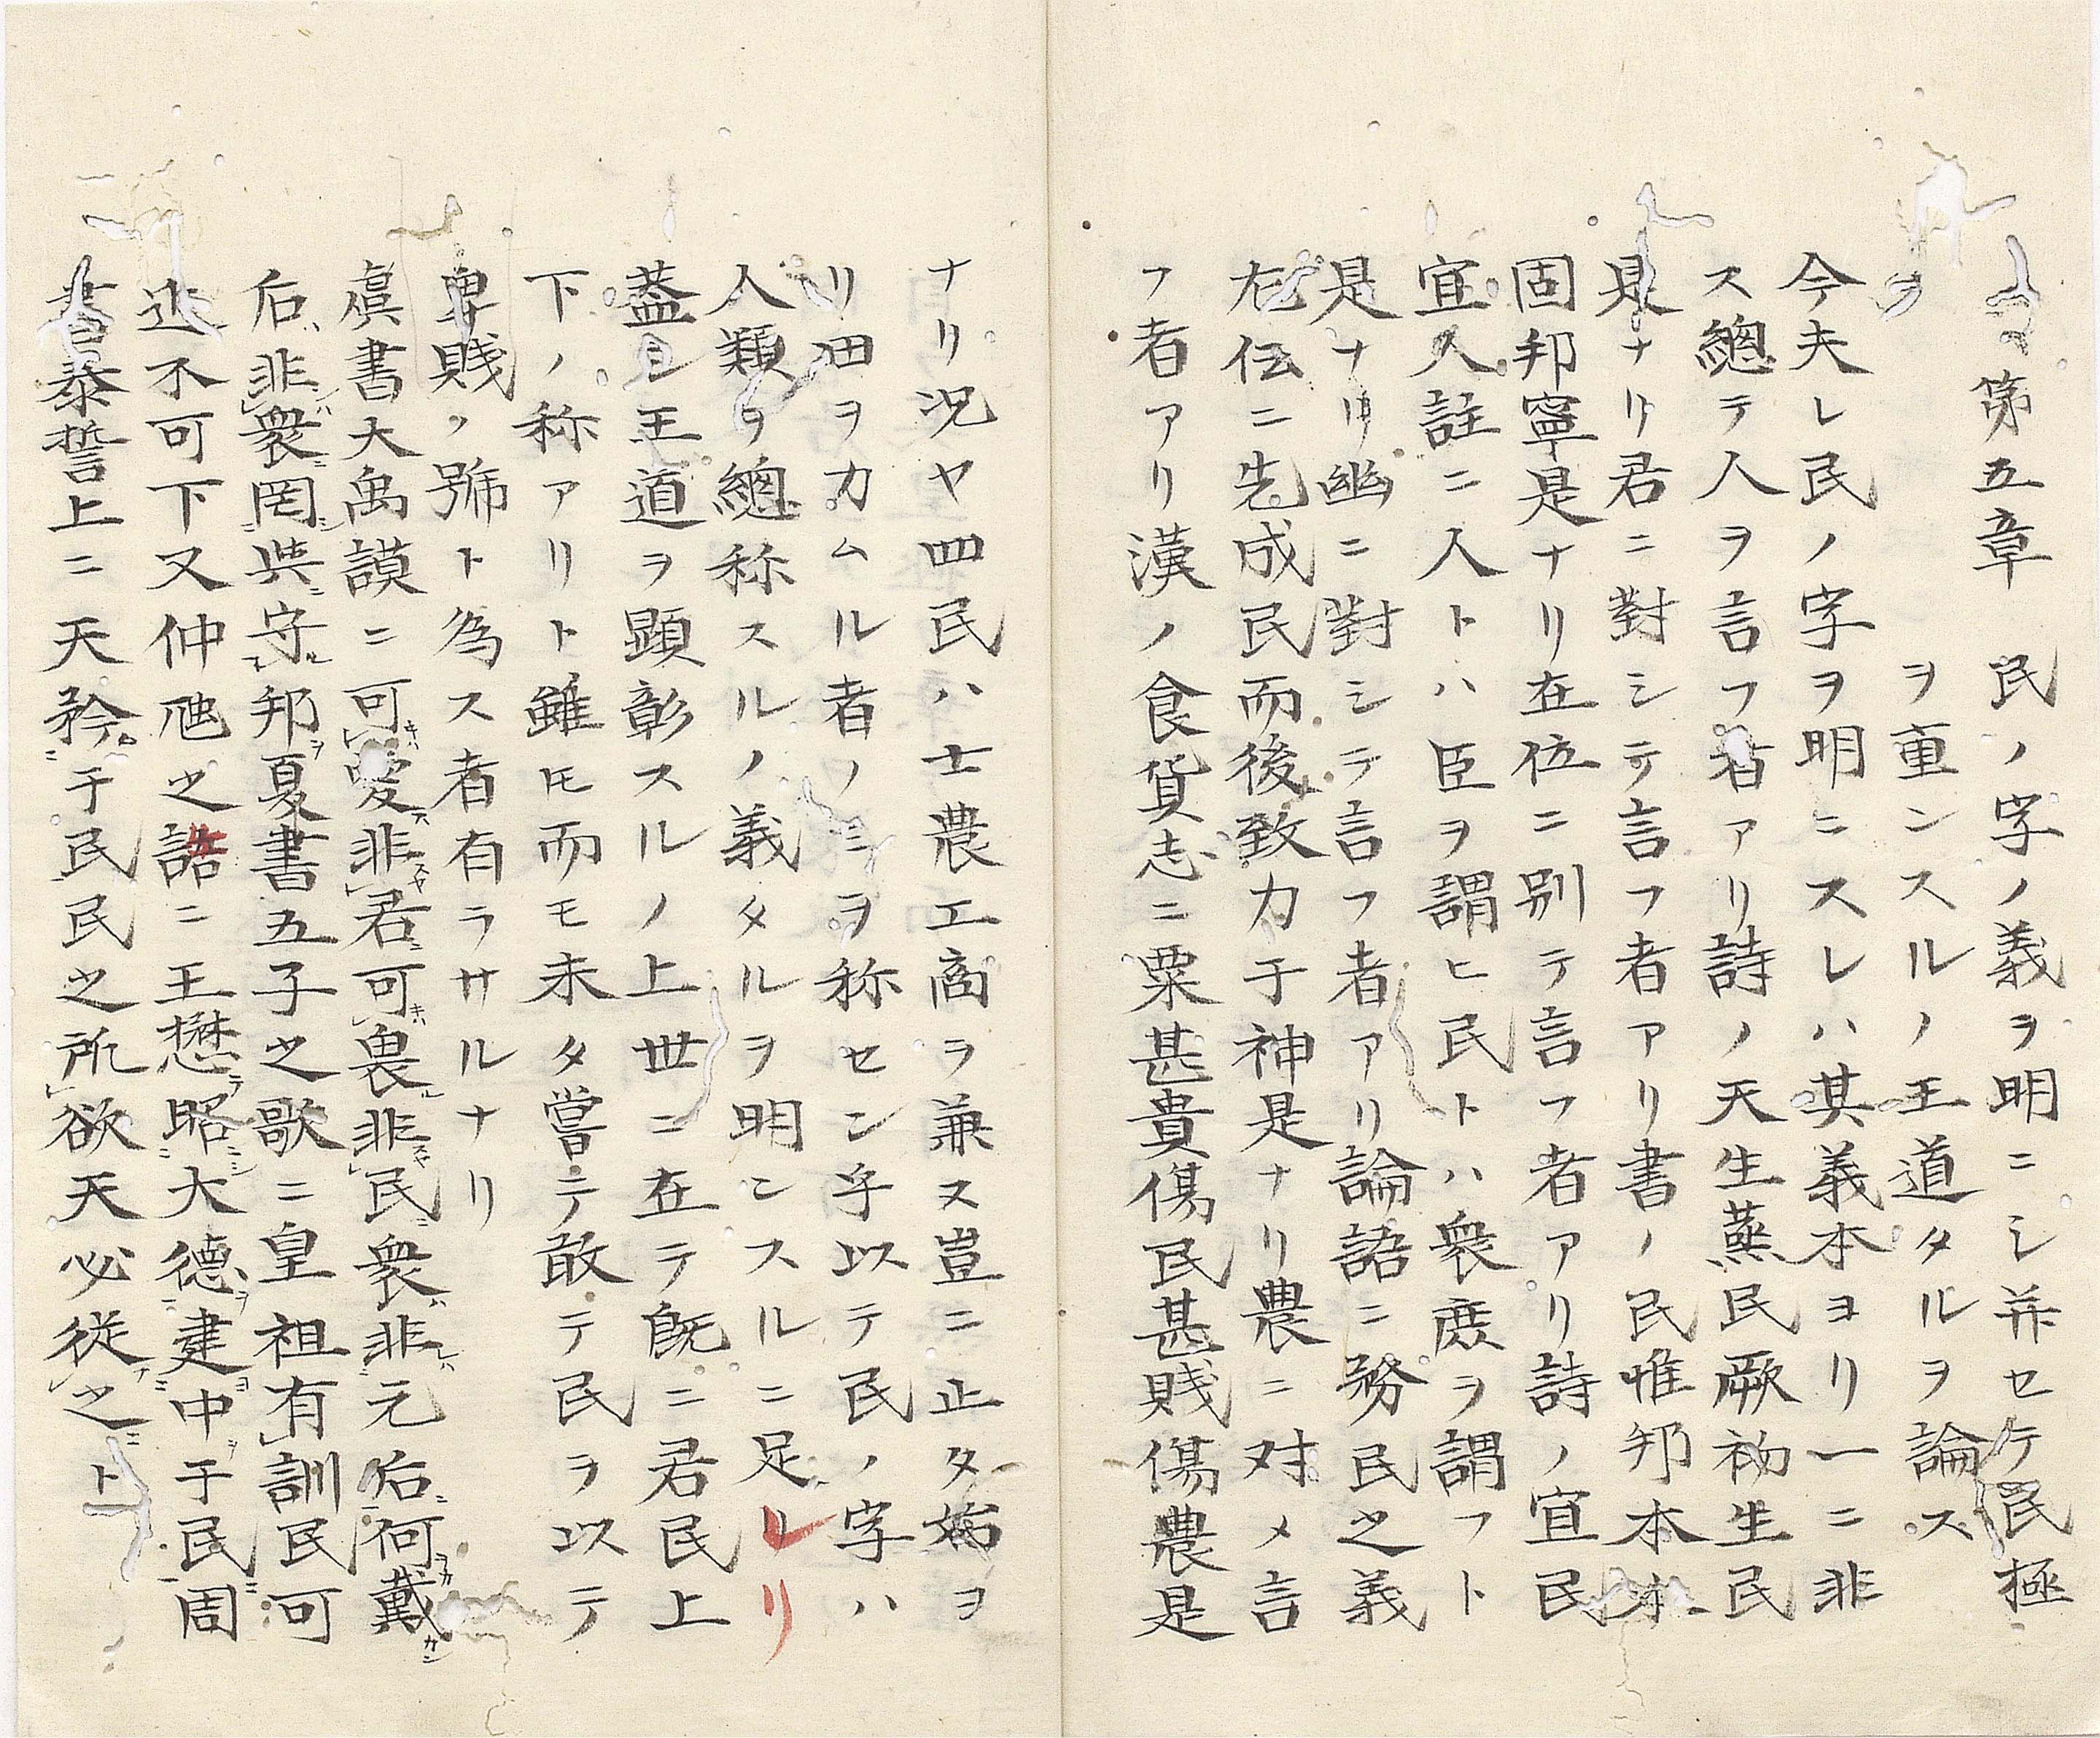 第五章 民ノ字ノ義ヲ明ニシ并セケ民極
ヲ重ンスルノ王道タルヲ論ス
今夫レ民ノ字ヲ明ニスレハ其義本ヨリ一ニ非
ス總テ人ヲ言フ者アリ詩ノ天生蒸民厥初生民
是ナリ君ニ對シテ言フ者アリ書ノ民惟邦本本
固邦寧是ナリ在位ニ別テ言フ者アリ詩ノ宜民
宜人註ニ人トハ臣ヲ謂ヒ民トハ衆庶ヲ謂フト
是ナリ幽ニ對シテ言フ者アリ論語ニ務民之義
左伝ニ先成民而後致力于神是ナリ農ニ対メ言
フ者アリ漢ノ食貨志ニ粟甚貴傷民甚賎傷農是
ナリ况ヤ四民ハ士農工商ヲ兼ス豈ニ止タ始ヲ
リ田ヲカムル者ノミヲ称セン乎以テ民ノ字ハ
人類ヲ總称スルノ義タルヲ明ニスルニ足ルリ
蓋シ王道ヲ顕彰スルノ上世ニ在テ既ニ君民上
下ノ称アリト雖モ而モ未タ嘗テ敢テ民ヲ以テ
卑賎ノ號ト為ス者有ラサルナリ
虞書大禹謨ニ可愛非君可畏非民衆非元后何戴
后非衆罔與守邦夏書五子之歌ニ皇祖有訓民可
近不可下又仲虺之誥ニ王懋昭大德建中于民周
書泰誓上ニ天矜于民民之所欲天必従之ト